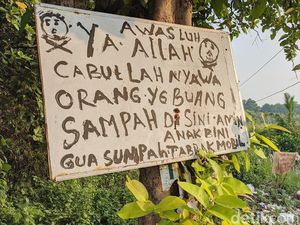 AWAS LUH
YA ALLAH
CABUT LAH NYAWA
ORANG YG BUANG
SAMPAH DI SINI AMIN
ANAK BINI
GUA SUMPAH TABRAK MOBIL
detikcom